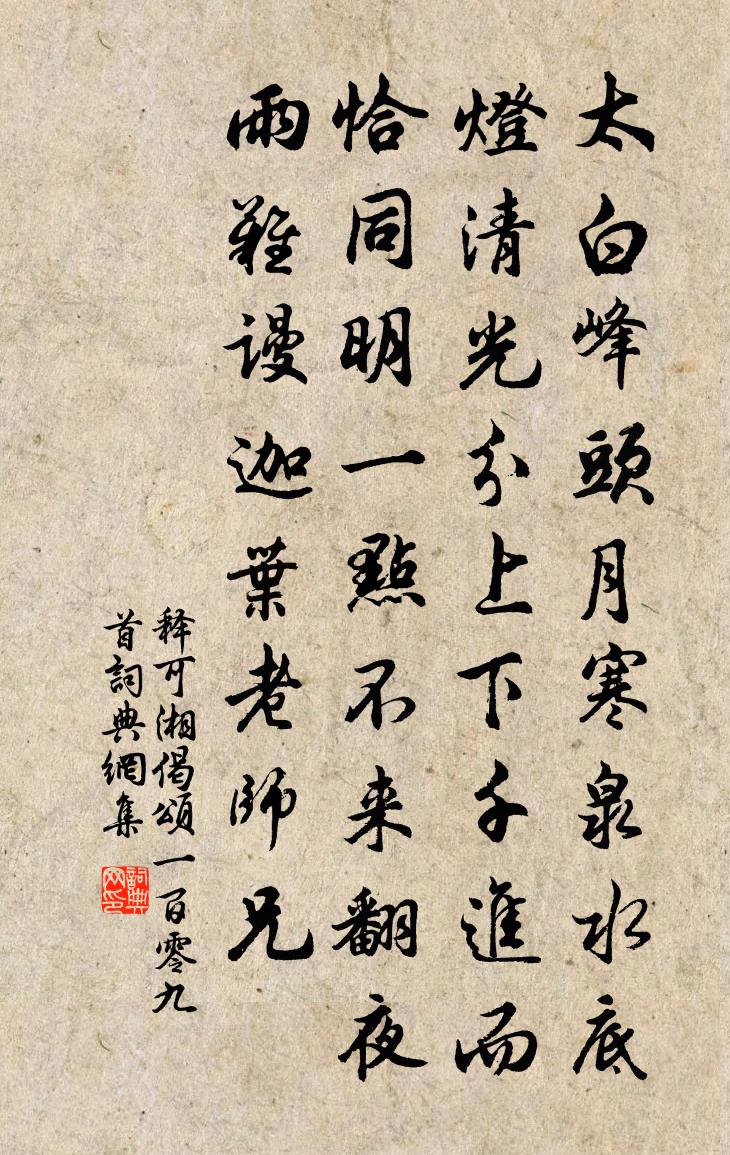 太白峰頭月寒泉水底
燈清光分上下千進而
恰同明一點不来翻夜
雨難謾迦葉老師兄
释可湘偈頌一百零九
首詞典網集
詞典
网印